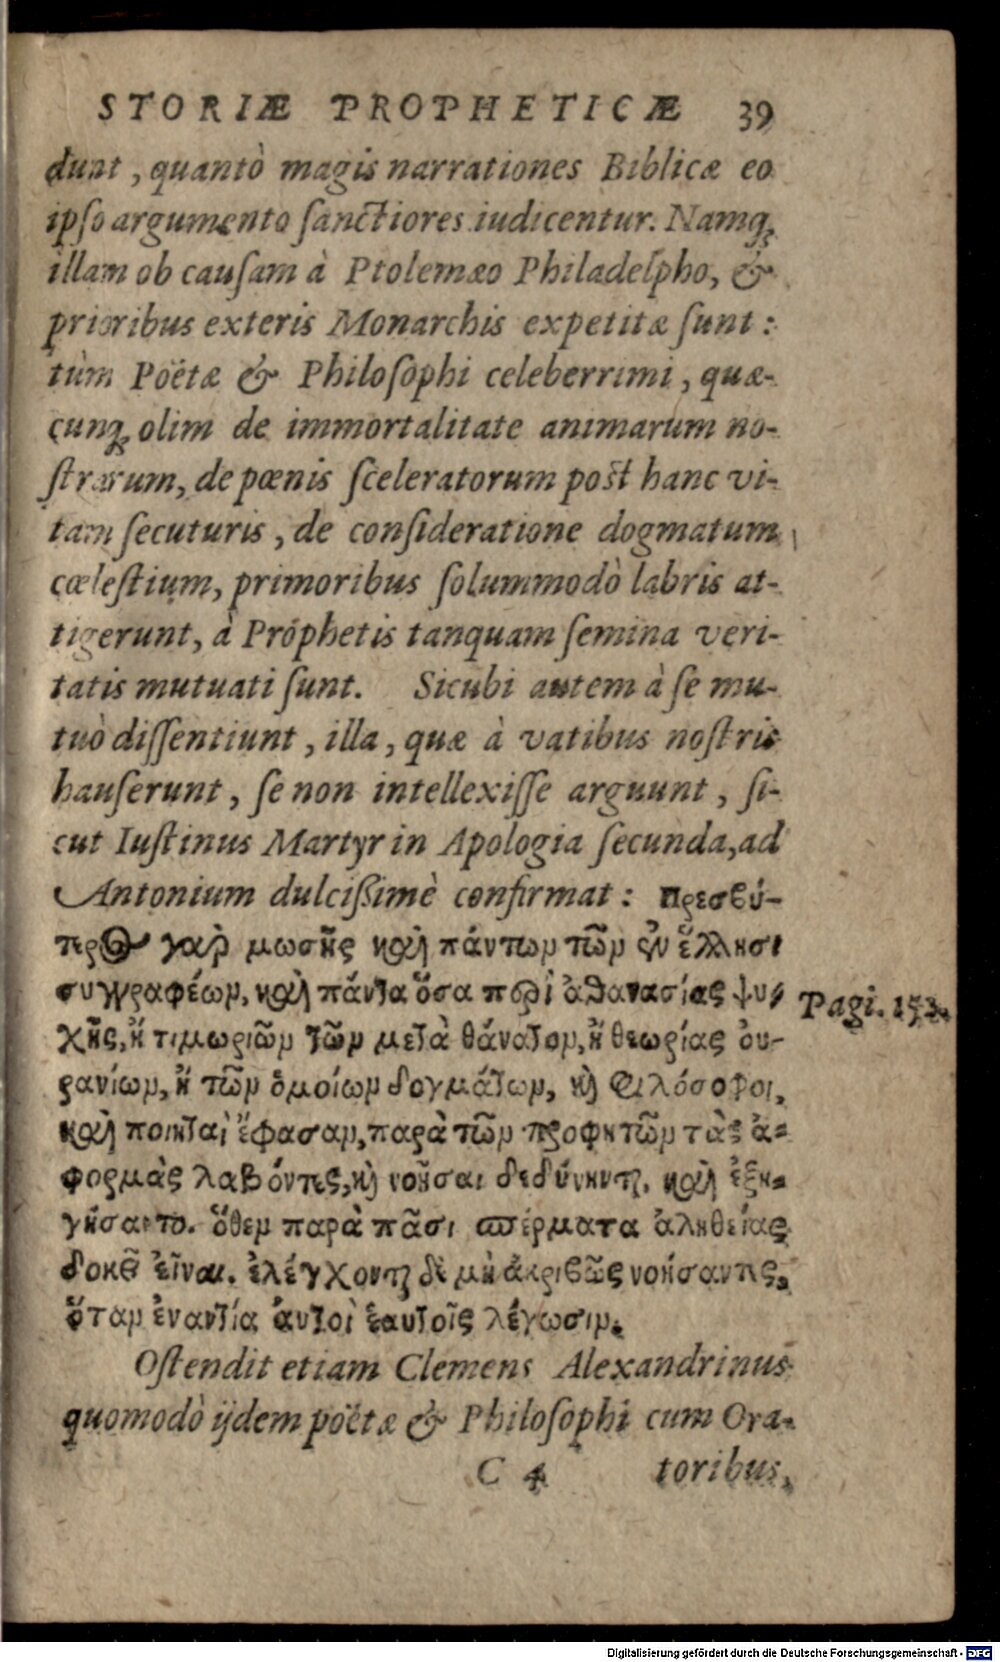 STORIÆ PROPHETICÆ 39
dunt, quantò magis narrationes Biblicæ eo
ipso argumento sanctiores iudicentur. Namq́;
illam ob causam à Ptolemæo Philadelpho, &
prioribus exteris Monarchis expetitæ sunt:
tùm Poëtæ & Philosophi celeberrimi, quæ-
cunq́; olim de immortalitate animarum no-
strarum, de pœnis sceleratorum post hanc vi-
tam secuturis, de consideratione dogmatum
cœlestium, primoribus solummodò labris at-
tigerunt, à Prophetis tanquam semina veri-
tatis mutuati sunt. Sicubi autem à se mu-
tuò dissentiunt, illa, quæ à vatibus nostris
hauserunt, se non intellexisse arguunt, si-
cut Iustinus Martyr in Apologia secunda, ad
Antonium dulcißimè confirmat: πρεσβύ-
τερος γαρ̀ μωσῆς καὶ πάντων τῶν ἐν ἕλλησι
συγγραφέων, καὶ πάντα ὅσα περὶ ἀθανασίας ψυ-
χῆς, ἢ τιμωριῶν τῶν μετὰ θάνατον, ἢ θεωρίας ὀυ-
ρανίων, ἢ τῶν ὁμοίων δογμάτων, κὶ Φιλόσοφοι,
καὶ ποιηταὶ ἔφασαν, παρὰ τῶν προφητῶν τὰς ἀ-
φορμὰς λαβόντες, κὶ νοῆσαι δεδύνηνται, καὶ ἐξη-
γήσαντο. ὅθεν παρὰ πᾶσι σπέρματα ἀληθείας
δοκεῖ εἶναι. ἐλέγχονται δὲ μὴ ἀκριβῶς νοήσαντες,
ὅταν ἐναντία ἀυτοὶ ἑαυτοῖς λέγωσιν.
Ostendit etiam Clemens Alexandrinus
quomodò ijdem poëtæ & Philosophi cum Ora-
C 4 toribus,
Pagi. 153.
Digitalisierung gefördert durch die Deutsche Forschungsgemeinschaft - DFG